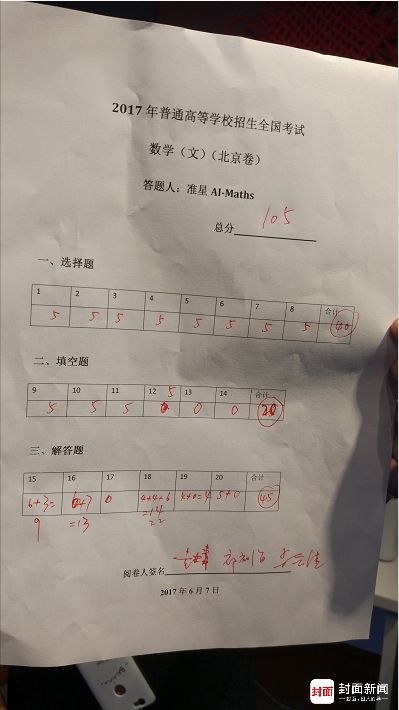 2017年普通高等学校招生全国考试
数学（文）（北京卷）
答题人：准星 AI-Maths
总分 105
一、选择题
1 2 3 4 5 6 7 8 合计
5 5 5 5 5 5 5 5 40
二、填空题
9 10 11 12 13 14 合计
5
5 5 5 0 0 20
三、解答题
15 16 17 18 19 20 合计
6+3= 0 4+4+6 4+0=4 5+0 45
9 =13 =14
阅卷人签名
2017年6月7日
封面 封面新闻